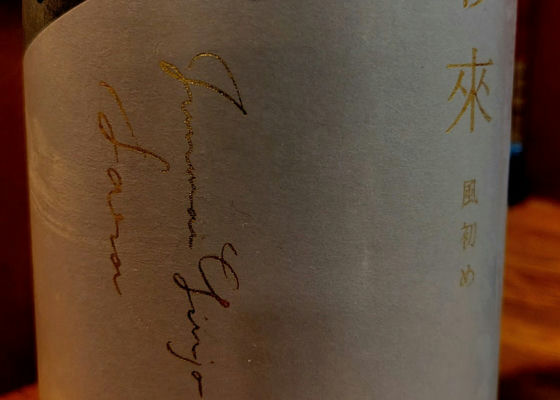 來
風初め
Junmai Ginjo
Sara